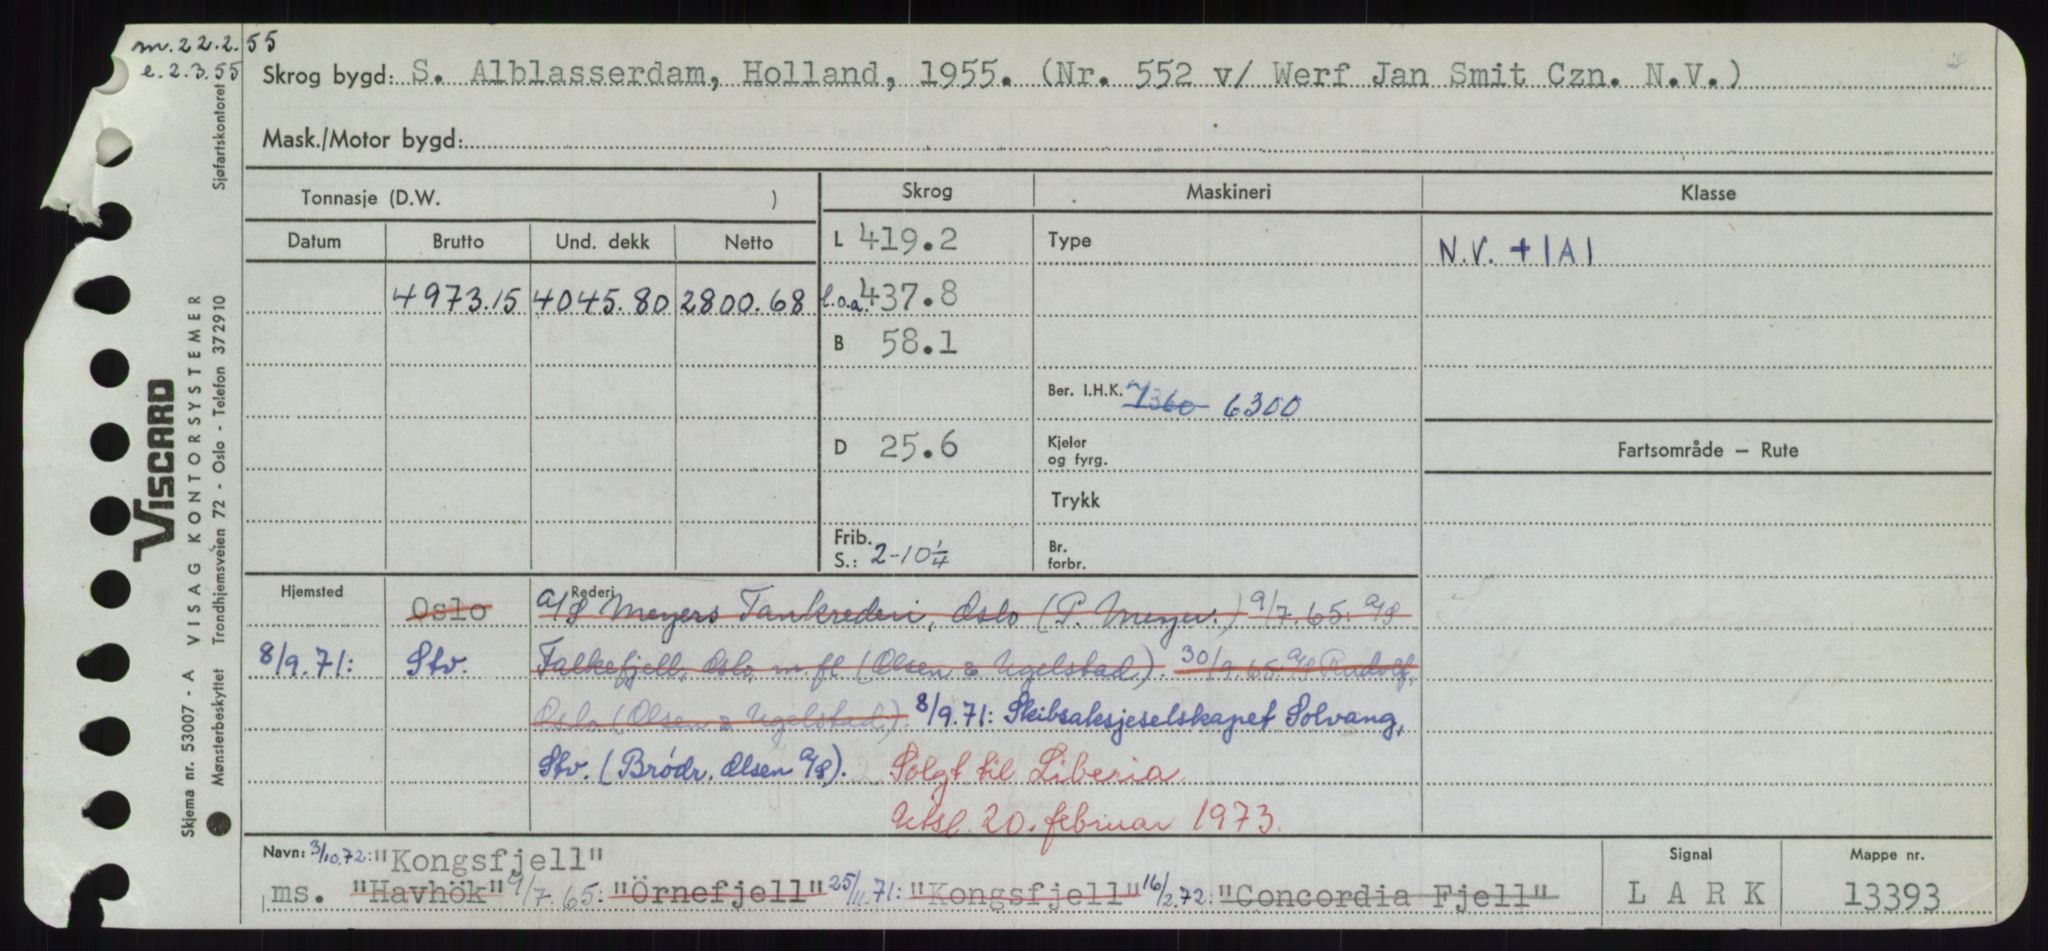 m. 22.2.55
e. 2.3.55
Skrog bygd: S. Alblasserdam, Holland, 1955. (Nr. 552 v/ Werf Jan Smit Czn. N.V.)
Mask./Motor bygd:
Tonnasje (D.W. )
Skrog
Maskineri
Klasse
Datum Brutto Und. dekk Netto
L 419.2
Type
N.V. + 1A1
4973.15 4045.80 2800.68
l.o.a. 437.8
B 58.1
Ber. I.H.K. 7360 6300
D 25.6
Kjeler
og fyrg.
Fartsområde — Rute
Trykk
Frib.
S.: 2-10 1/4
Br.
forbr.
Hjemsted
Rederi
Oslo
A/S Meyers Tankrederi, Oslo (P. Meyer.) 9/7.65: A/S
8/9.71: Stv.
Falkefjell, Oslo, m.fl (Olsen & Ugelstad). 30/9.65. A/S Rudolf,
Oslo (Olsen & Ugelstad) 8/9.71: Skibsaksjeselskapet Solvang,
Stv. (Brödr. Olsen A/S). Solgt til Liberia
Utsl. 20. februar 1973.
Navn: 3/10.72: "Kongsfjell"
ms. "Havhök" 9/7.65: "Örnefjell" 25/11.71: "Kongsfjell" 16/2.72: "Concordia Fjell"
Signal
LARK
Mappe nr.
13393
Skjema nr. 53007 - A VISAG KONTORSYSTEMER
VISCARD
Mønsterbeskyttet Trondhjemsveien 72 - Oslo - Telefon 372910
Sjøfartskontoret